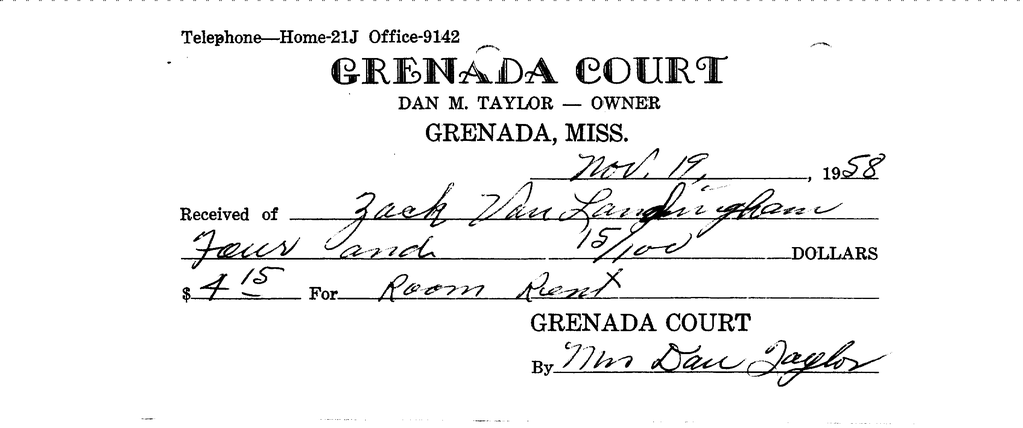 Telephone—Home-21J Office-9142
GRENADA COURT
DAN M. TAYLOR — OWNER
GRENADA, MISS.
Nov. 19, , 1958
Received of Zack Van Landingham
Four and 15/100 DOLLARS
$ 4 15 For Room Rent
GRENADA COURT
By Mrs Dan Taylor